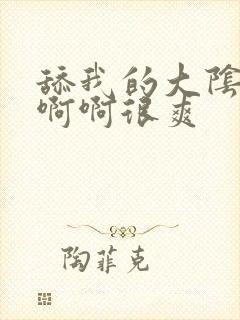 舔我的大陰
啊啊很爽
陶菲克